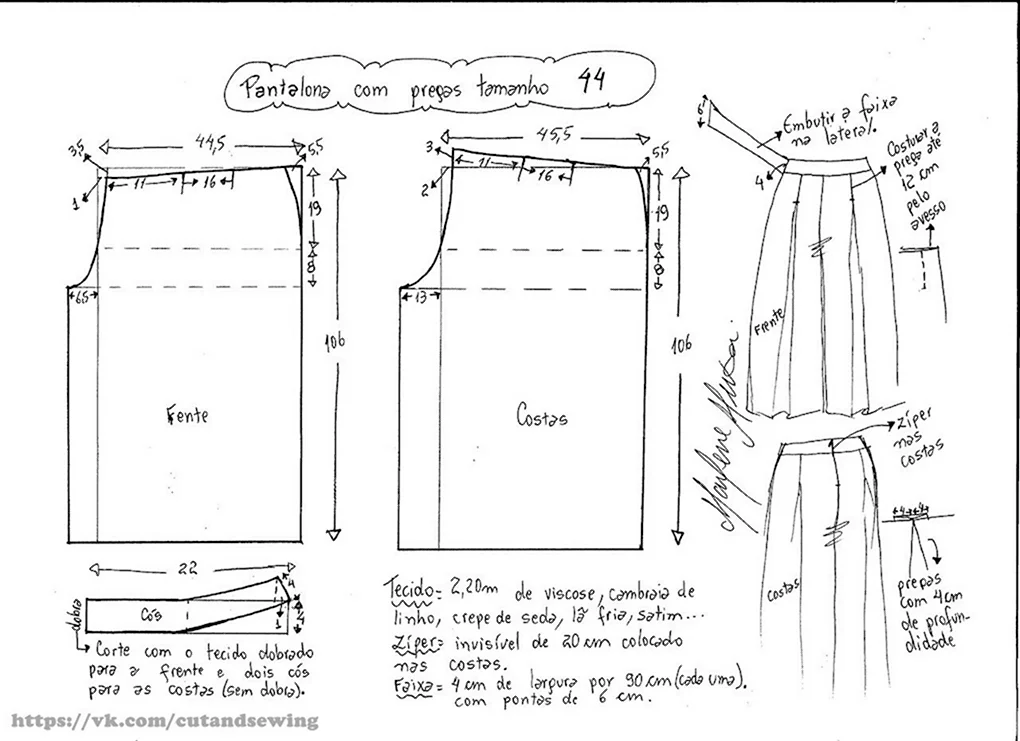 Pantalona com pregas tamanho 44
44,5
3,5
5,5
11
16
1
19
8
6,5
106
Frente
45,5
3
5,5
11
16
2
19
8
13
106
Costas
6
Embutir a faixa
na lateral.
4
Costurar a
prega até
12 cm
pelo
avesso
Frente
Marlene Mukai
zíper
nas
costas
Costas
4 4
pregas
com 4 cm
de profun-
didade
22
4
4
dobra
Cós
Corte com o tecido dobrado
para a frente e dois cós
para as costas (sem dobra).
Tecido= 2,20m de viscose, cambraia de
linho, crepe de seda, lã fria, satim...
Zíper= invisível de 20 cm colocado
nas costas.
Faixa= 4 cm de largura por 90 cm (cada uma).
com pontas de 6 cm.
https://vk.com/cutandsewing